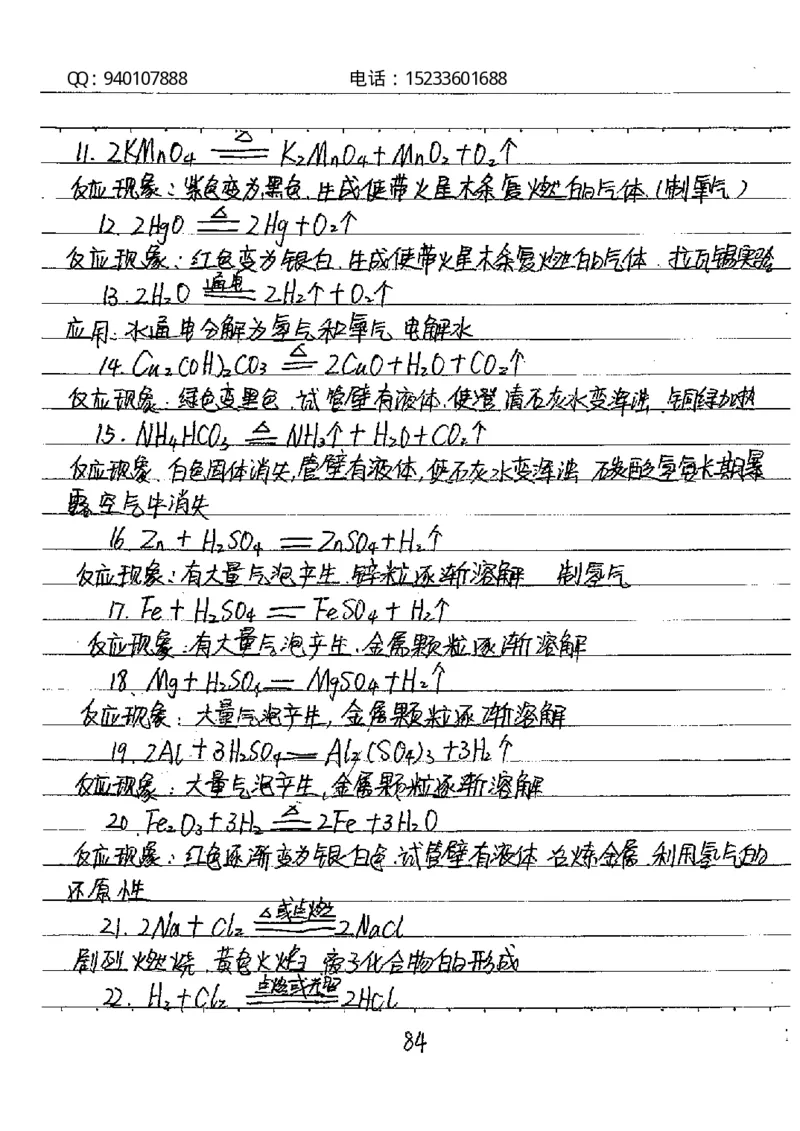 QQ：940107888 电话：15233601688
11. 2KMnO₄ ≜ K₂MnO₄+MnO₂+O₂↑
反应现象：紫色变为黑色.生成使带火星木条复燃的气体（制氧气）
12. 2HgO ≜ 2Hg+O₂↑
反应现象：红色变为银白.生成使带火星木条复燃的气体 拉瓦锡实验
13. 2H₂O 通电══ 2H₂↑+O₂↑
应用：水通电分解为氢气和氧气 电解水
14. Cu₂(OH)₂CO₃ ≜ 2CuO+H₂O+CO₂↑
反应现象.绿色变黑色.试管壁有液体.使澄清石灰水变浑浊.铜绿加热
15. NH₄HCO₃ ≜ NH₃↑+H₂O+CO₂↑
反应现象.白色固体消失,管壁有液体,使石灰水变浑浊 碳酸氢氨长期暴
露空气中消失
16. Zn + H₂SO₄ = ZnSO₄+H₂↑
反应现象：有大量气泡产生.锌粒逐渐溶解 制氢气
17. Fe + H₂SO₄ = FeSO₄ + H₂↑
反应现象：有大量气泡产生.金属颗粒逐渐溶解
18. Mg + H₂SO₄ = MgSO₄+H₂↑
反应现象：大量气泡产生，金属颗粒逐渐溶解
19. 2Al + 3H₂SO₄ = Al₂(SO₄)₃ +3H₂↑
反应现象：大量气泡产生,金属颗粒逐渐溶解
20. Fe₂O₃+3H₂ ≜ 2Fe +3H₂O
反应现象：红色逐渐变为银白色.试管壁有液体 冶炼金属.利用氢气的
还原性
21. 2Na + Cl₂ △或点燃══ 2NaCl
剧烈燃烧.黄色火焰 离子化合物的形成
22. H₂+Cl₂ 点燃或光照══ 2HCl
84